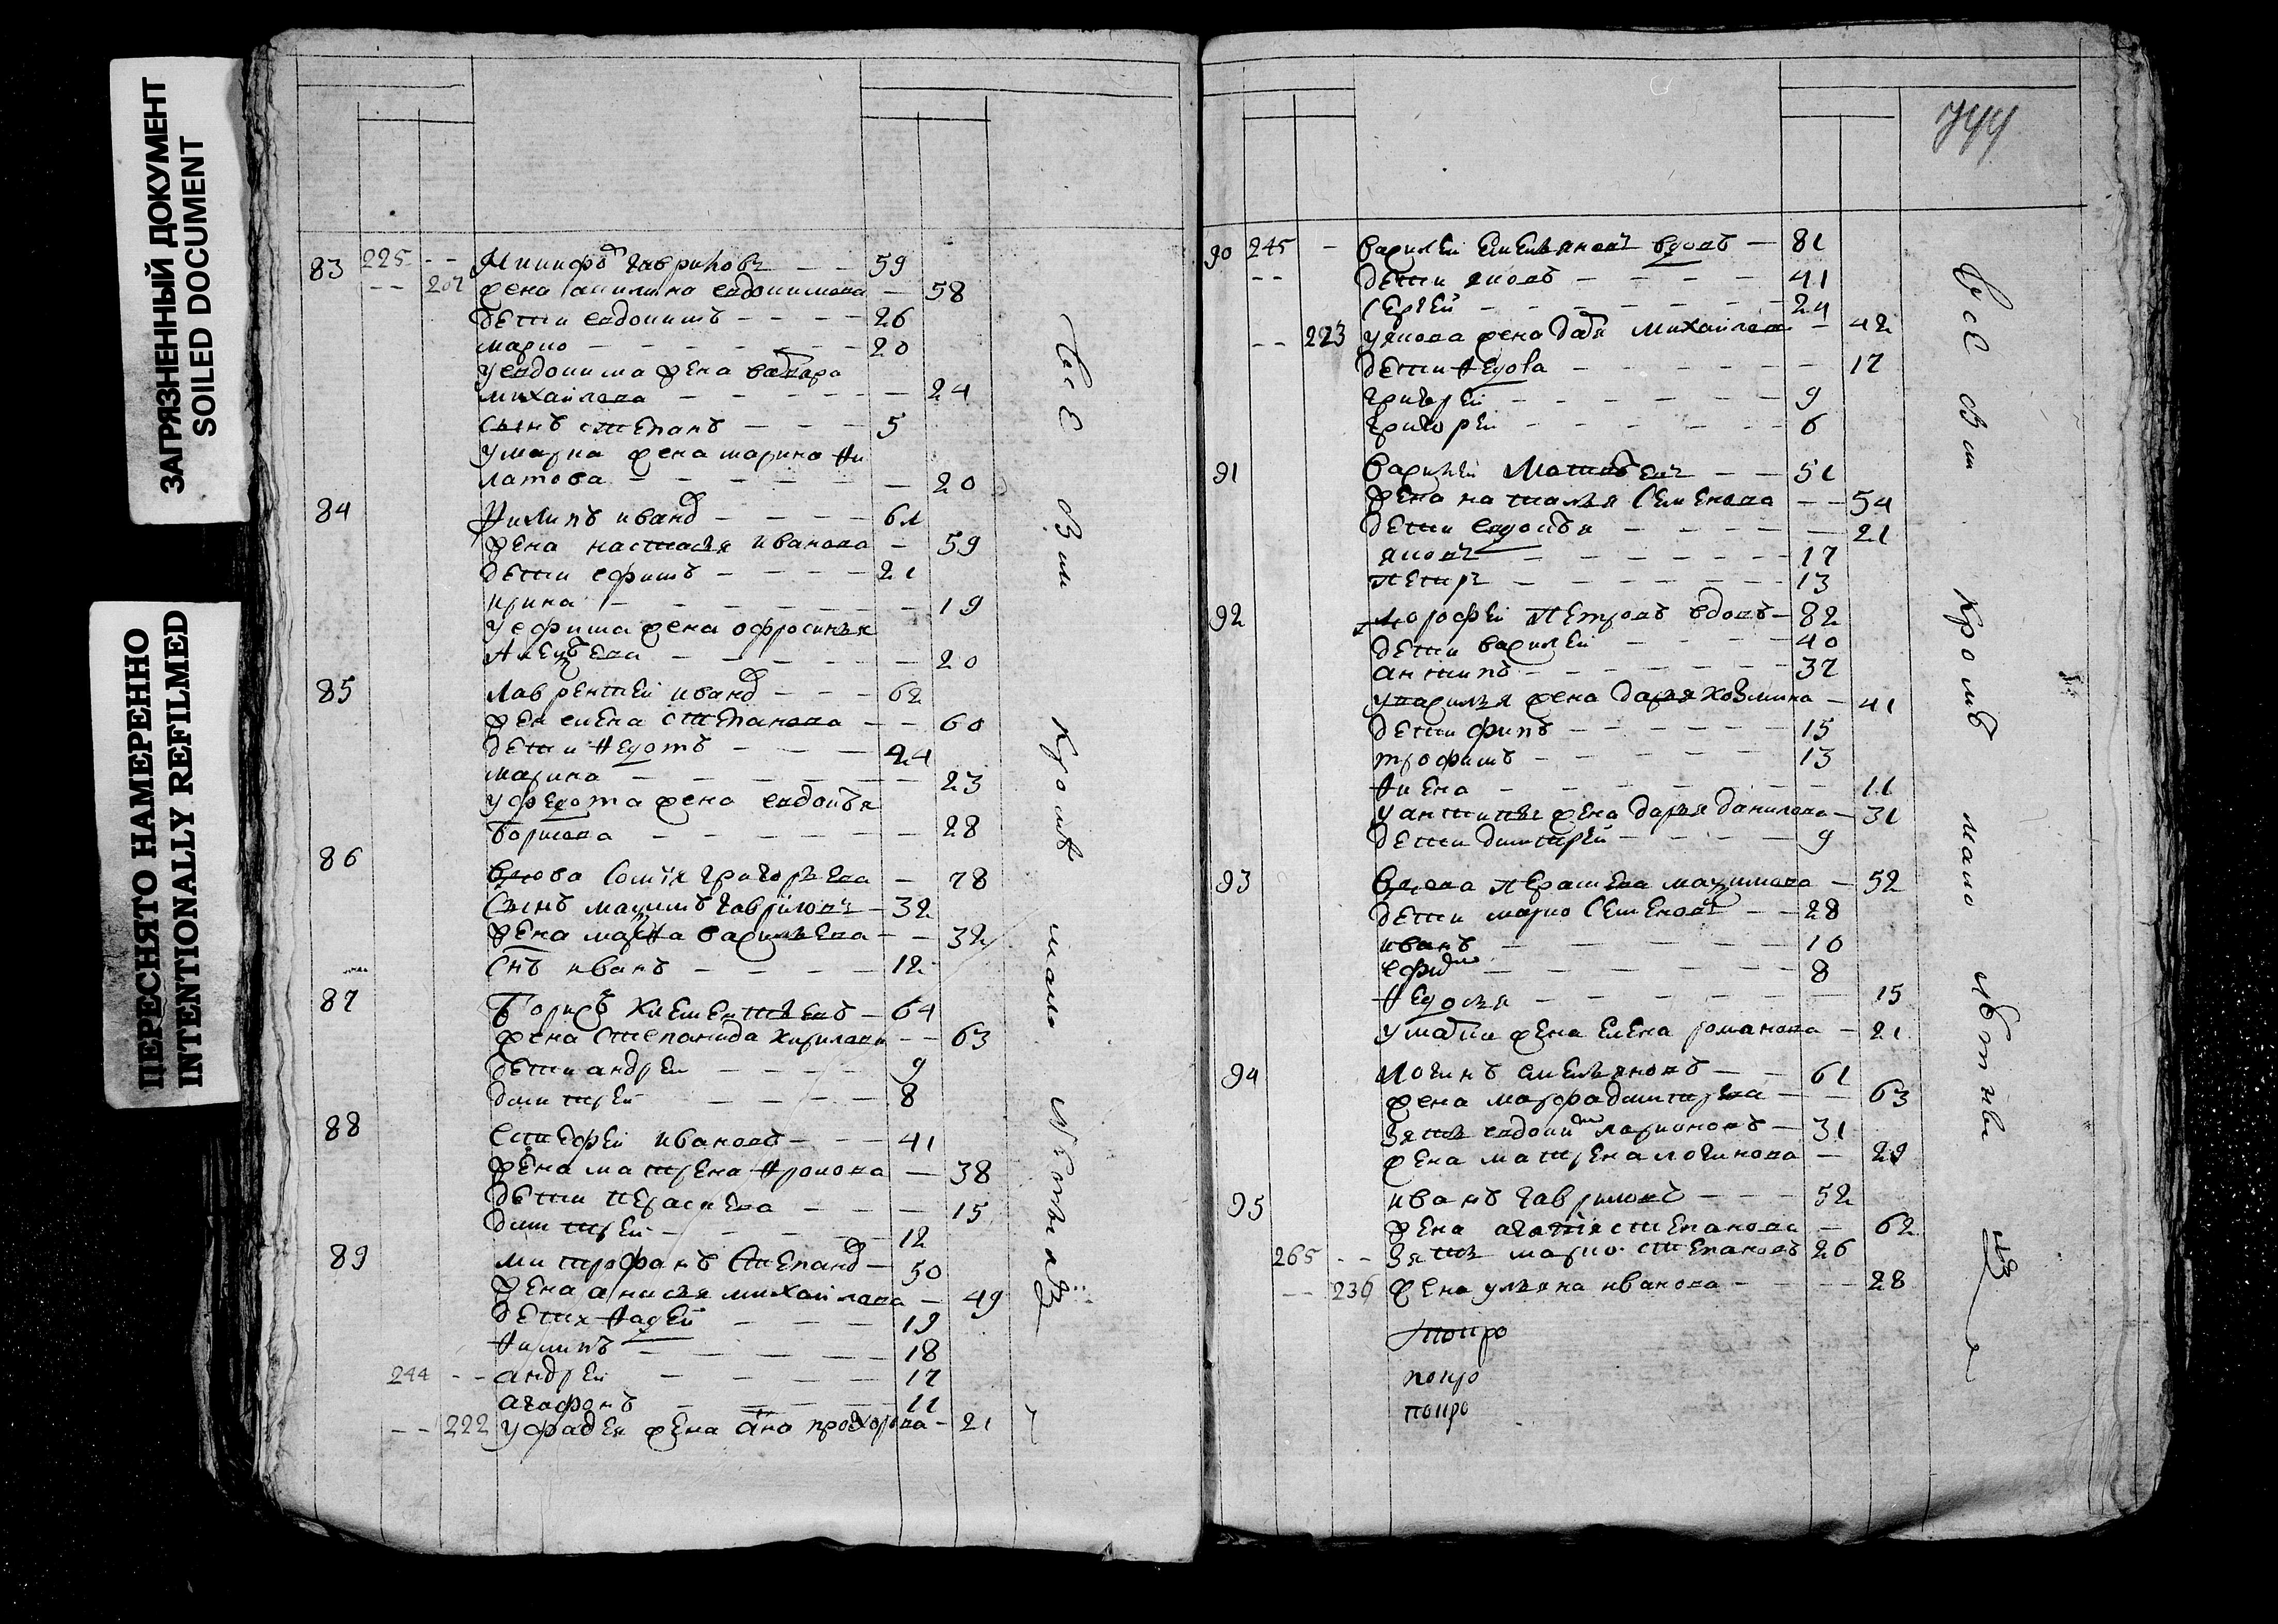 ЗАГРЯЗНЕННЫЙ ДОКУМЕНТ
SOILED DOCUMENT
ПЕРЕСНЯТО НАМЕРЕННО
INTENTIONALLY REFILMED
83 225 - - Никифоръ Гавриловъ - - 59
- - 207 жена акилина евдокимова - 58
дети евдокимъ - - - - 26
марко - - - - - - 20
у евдокима жена варвара
михайлова - - - - - - 24
сынъ степанъ - - - 5
у марка жена марина фи
латова - - - - - - 20
84 филипъ иванов - - - - 61
жена настасья иванова - 59
дети ефимъ - - - - 21
ирина - - - - - - 19
у ефима жена офросинья
алексѣева - - - - - - 20
85 лаврентей иванов - - - 62
жена елена степанова - - 60
дети федотъ - - - - 24
марина - - - - - - 23
у федота жена евдокѣя
борисова - - - - - - 28
86 вдова софья григорьева - 78
сынъ максимъ гавриловъ - 32
жена марфа васильева - - 32
снъ иванъ - - - - 12
87 борисъ клементьевъ - 64
жена степанида кирилова - - 63
дети андрей - - - - 9
дмитрей - - - - 8
88 Ивановъ - - - 41
жена матрена фролова - 38
дети пераскева - - - 15
дмитрей - - - - - 12
89 митрофанъ степанов - 50
жена анисья михайлова - 49
дети фадей - - - 19
филипъ - - - - - 18
244 - - андрей - - - - 17
агафонъ - - - - 11
- - 222 у фадея жена анна прохорова - 21
Всѣ
кромѣ
мало
лѣтныхъ
744
90 245 - василей емельяновъ вдовъ - 81
- - дети яковъ - - - - 41
сергей - - - - - - 24
- - 223 у якова жена дарья михайлова - 42
дети федора - - - - - - 17
григорей - - - - - - 9
григорей - - - - - - 6
91 василей Матвѣевъ - - 51
жена наталья семенова - - 54
дети евдокѣя - - - - - 21
яковъ - - - - - - 17
петръ - - - - - - 13
92 дорофей петровъ вдовъ - 82
дети василей - - - - 40
антипъ - - - - - - 37
у василья жена дарья козмина - 41
дети - - - - - 15
трофимъ - - - - - 13
- - - - - - 11
у антипа жена дарья данилова - 31
дети дмитрей - - - - 9
93 вдова пераскева максимова - 52
дети марко семеновъ - - 28
иванъ - - - - - 10
ефим - - - - - 8
федосья - - - - - - 15
у марка жена елена романова - 21
94 логинъ емельяновъ - - 61
жена марфа дмитрева - - 63
зять евдоким ларионовъ - 31
жена матрена логинова - 29
95 иванъ гавриловъ - - - 52
жена агафья степанова - 62
265 - - зять марко степановъ 26
- - 236 жена ульяна иванова - - - 28
попро
попро
попро
Всѣ
кромѣ
мало
лѣтныхъ